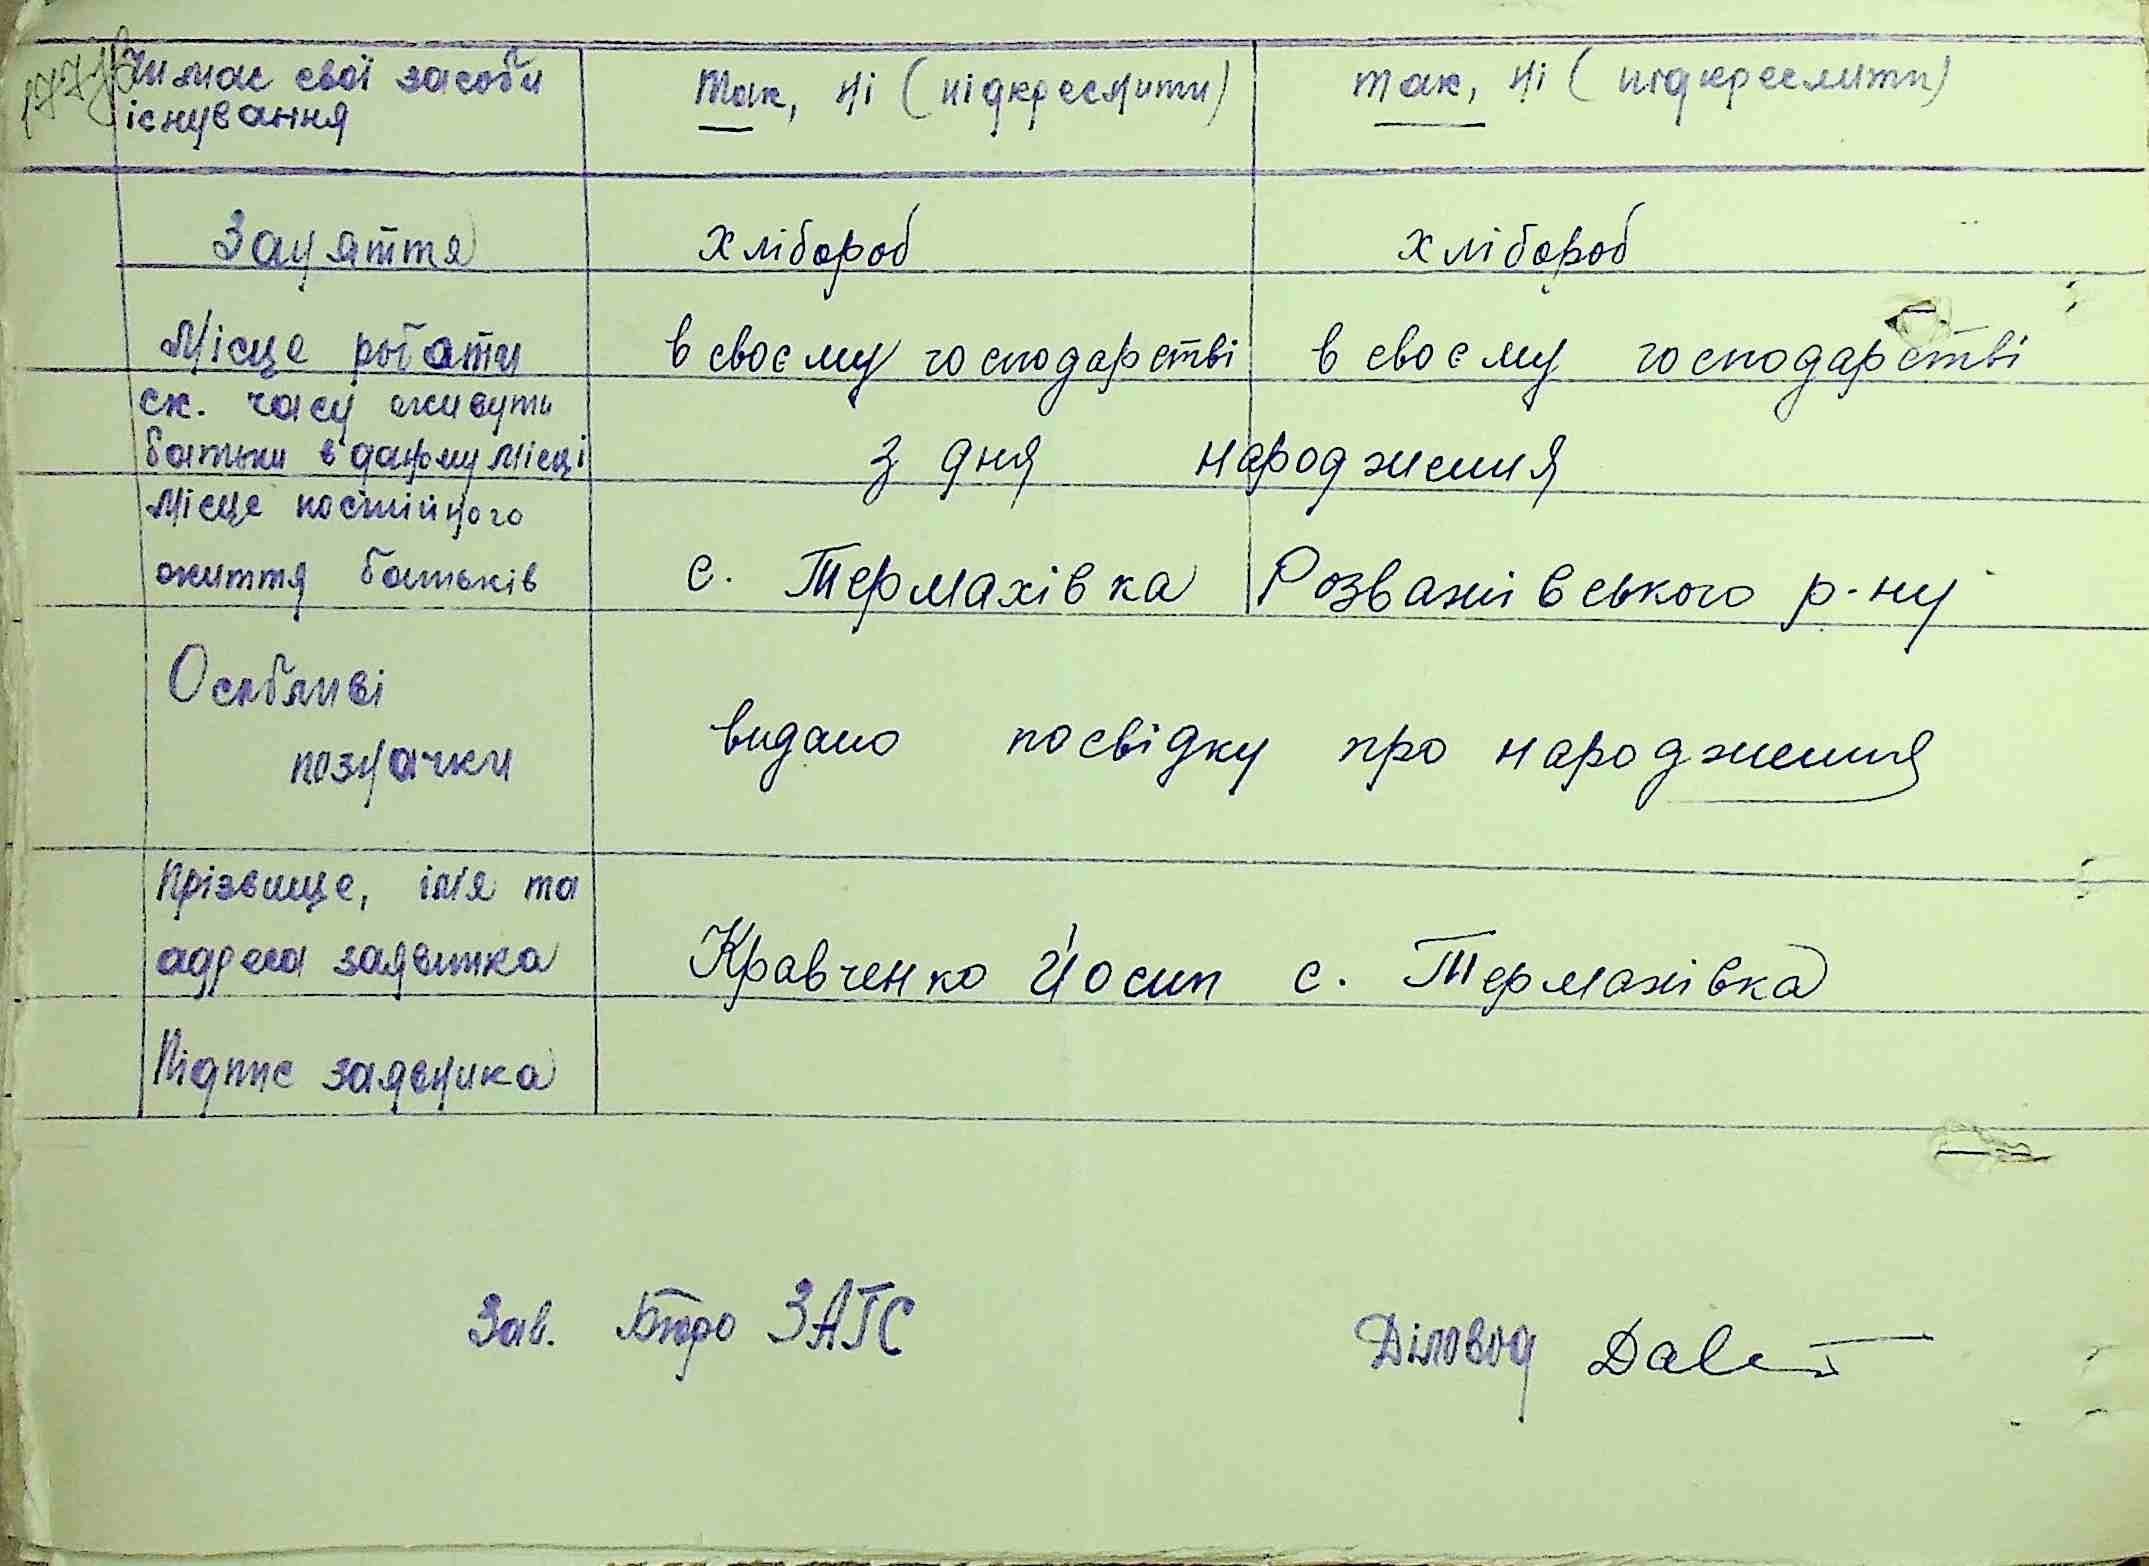 Чи має свої засоби існування
так, ні (підкреслити)
так, ні (підкреслити)
Заняття
хлібороб
хлібороб
Місце роботи
в своєму господарстві
в своєму господарстві
ск. часу живуть
батьки в даному місці
з дня народження
Місце постійного
життя батьків
с. Термахівка Розважівського р-ну
Особливі
позначки
видано посвідку про народження
Прізвище, ім'я та
адреса заявника
Кравченко Йосип с. Термахівка
Підпис заявника
Зав. Бюро ЗАГС
Діловод